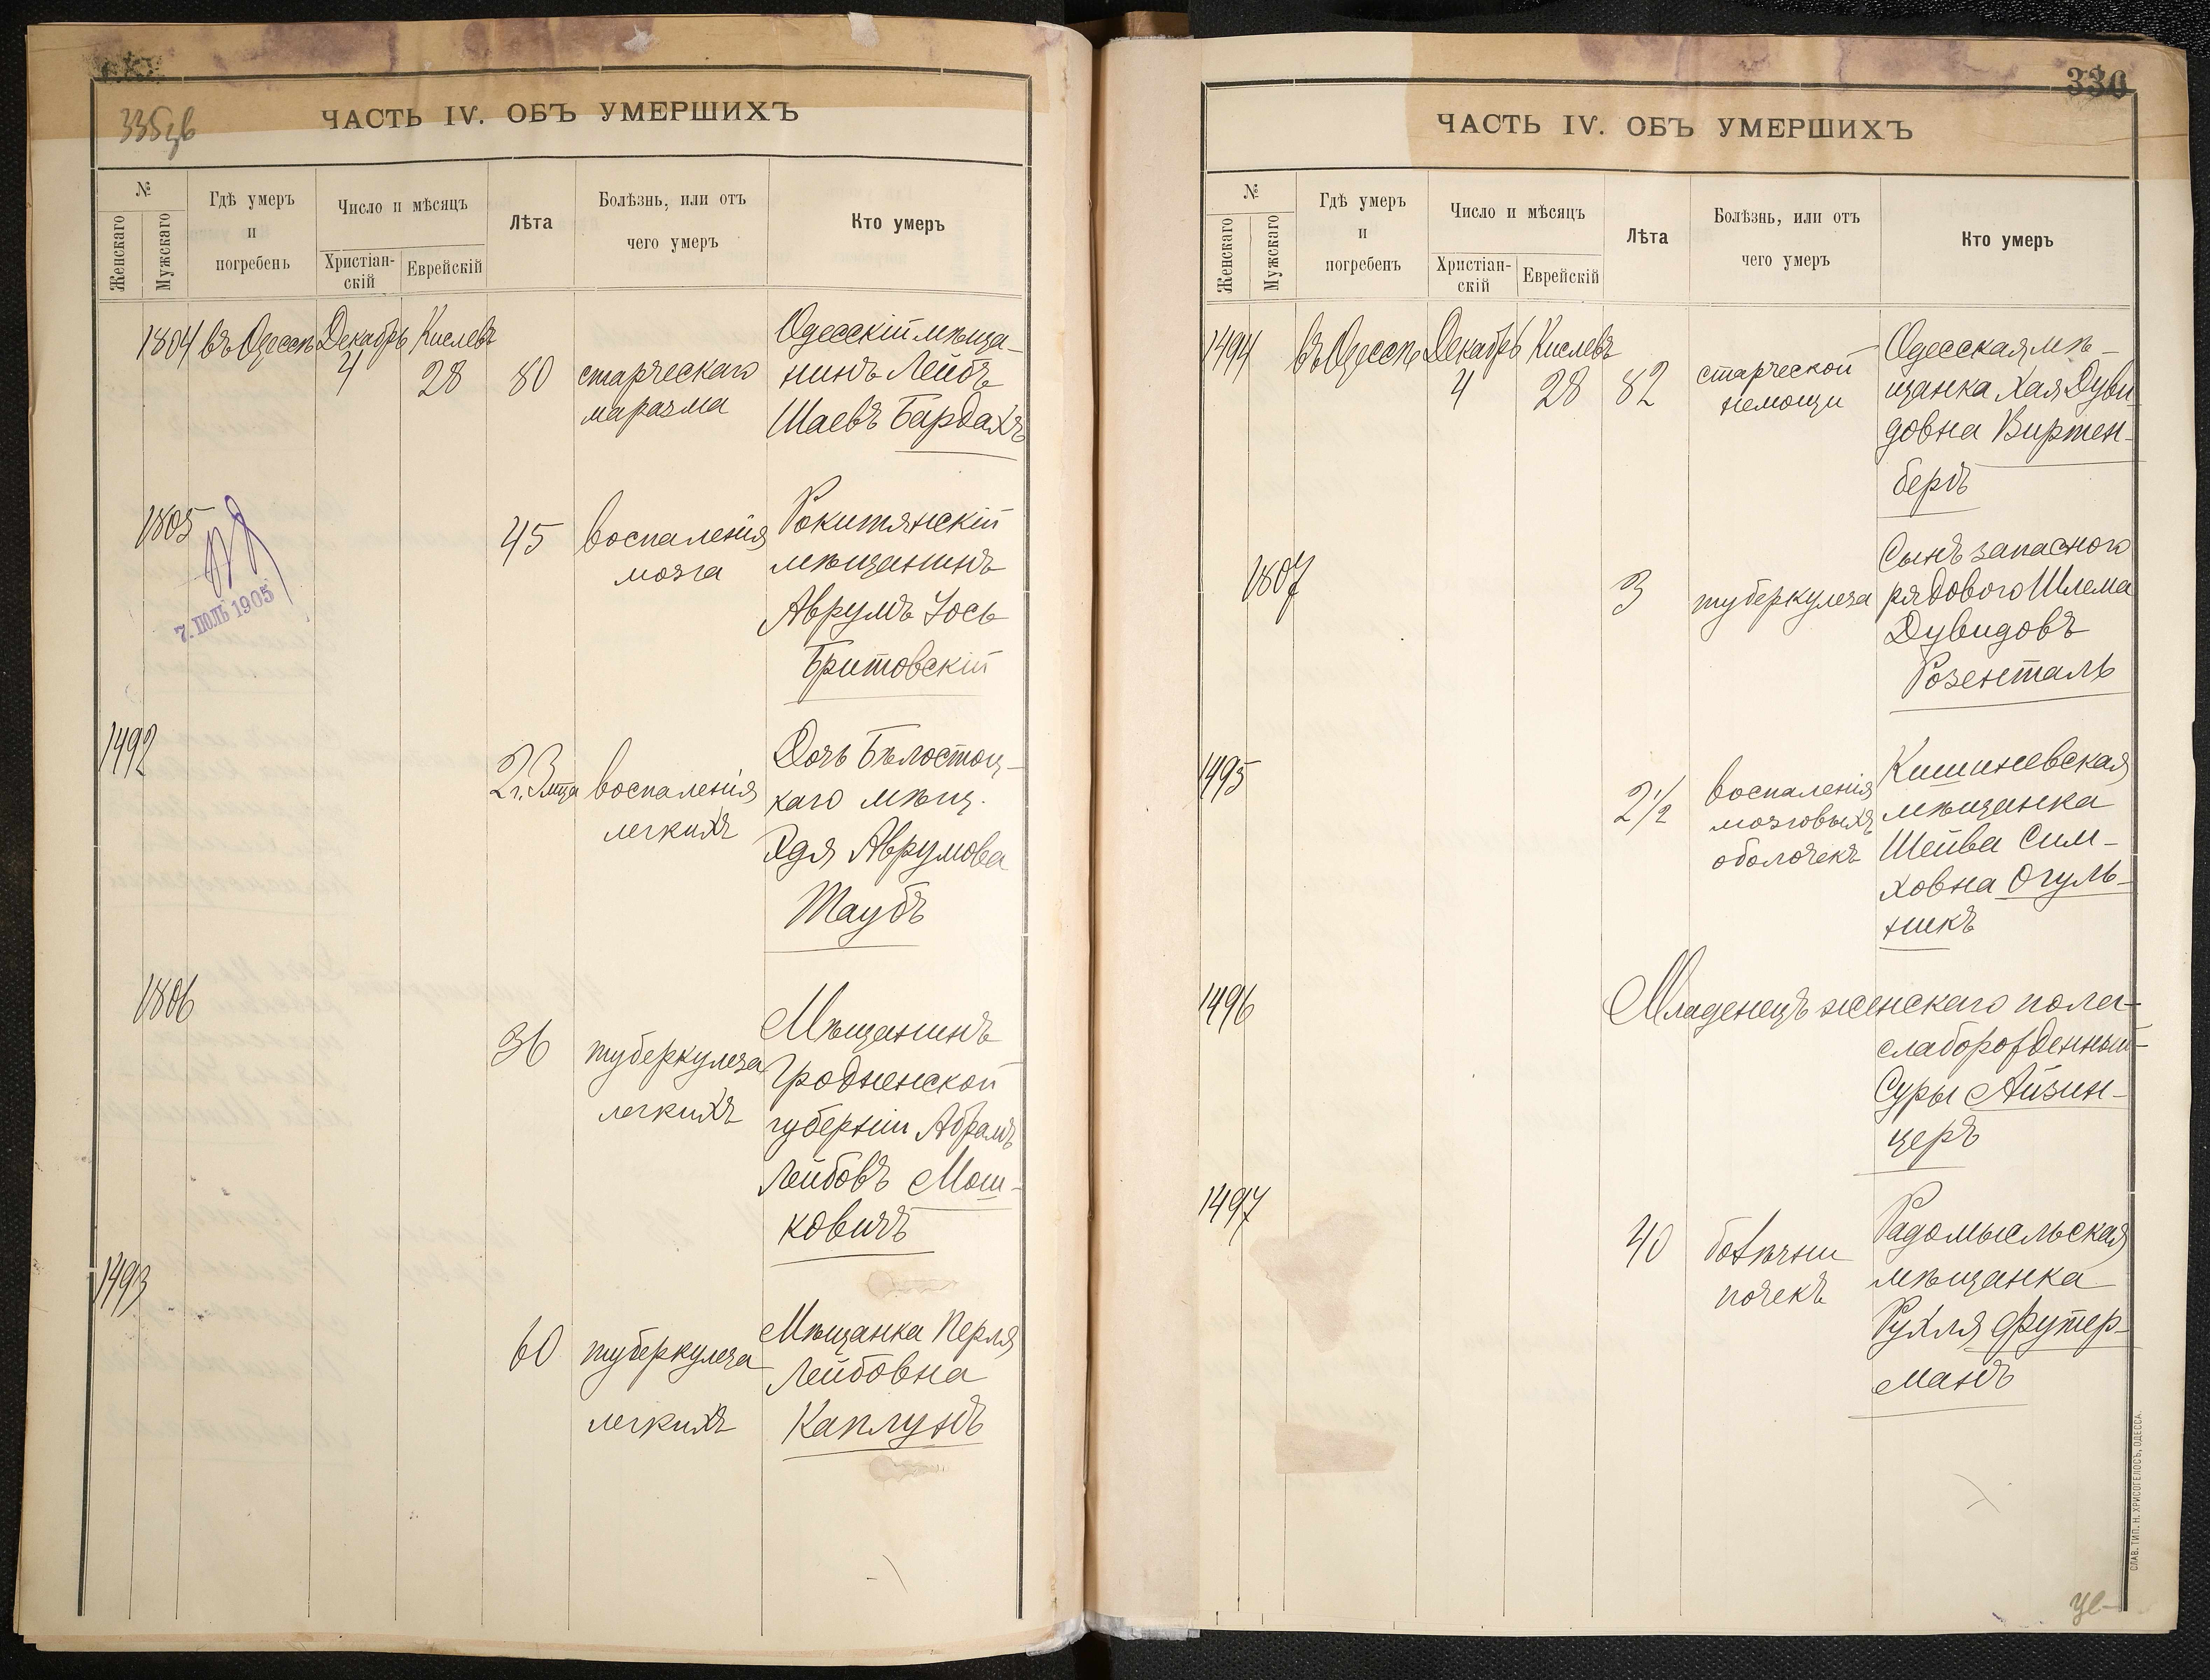 335
ЧАСТЬ IV. ОБЪ УМЕРШИХЪ
№
Женскаго
Мужскаго
Гдѣ умеръ
и
погребенъ
Число и мѣсяцъ
Христіан-
скій
Еврейскій
Лѣта
Болѣзнь, или отъ
чего умеръ
Кто умеръ
1804 въ Одессѣ Декабрь 4 Кислевъ 28 80 старческаго
маразма
Одесскій мѣща-
нинъ Лейбъ
Шаевъ Бардахъ
1805
7. ІЮЛЬ 1905
45 воспаленія
мозга
Рокитянскій
мѣщанинъ
Аврумъ Іось
Бритовскій
1492
2 г. 3 мца воспаленія
легкихъ
Дочь Бѣлостоц-
каго мѣщ.
Хая Аврумова
Таубъ
1806
36 туберкулеза
легкихъ
Мѣщанинъ
Гродненской
губерніи Абрамъ
Лейбовъ Мош-
ковичъ
1493
60 туберкулеза
легкихъ
Мѣщанка Перля
Лейбовна
Каплунъ
330
ЧАСТЬ IV. ОБЪ УМЕРШИХЪ
№
Женскаго
Мужскаго
Гдѣ умеръ
и
погребенъ
Число и мѣсяцъ
Христіан-
скій
Еврейскій
Лѣта
Болѣзнь, или отъ
чего умеръ
Кто умеръ
1494 въ Одессѣ Декабрь 4 Кислевъ 28 82 старческой
немощи
Одесская мѣ-
щанка Хая Дуви-
довна Виртен-
бергъ
1807
3 туберкулеза
Сынъ запаснаго
рядового Шлема
Дувидовъ
Розенталь
1495
2½ воспаленія
мозговыхъ
оболочекъ
Кишиневская
мѣщанка
Шейва Сим-
ховна Огуль-
никъ
1496
Младенецъ женскаго пола
слаборожденный
Суры Айзин-
церъ
1497
40 болѣзни
почекъ
Радомысльская
мѣщанка
Рухля Футер-
манъ
СЛАВ. ТИП. Н. ХРИСОГЕЛОСЪ, ОДЕССА.